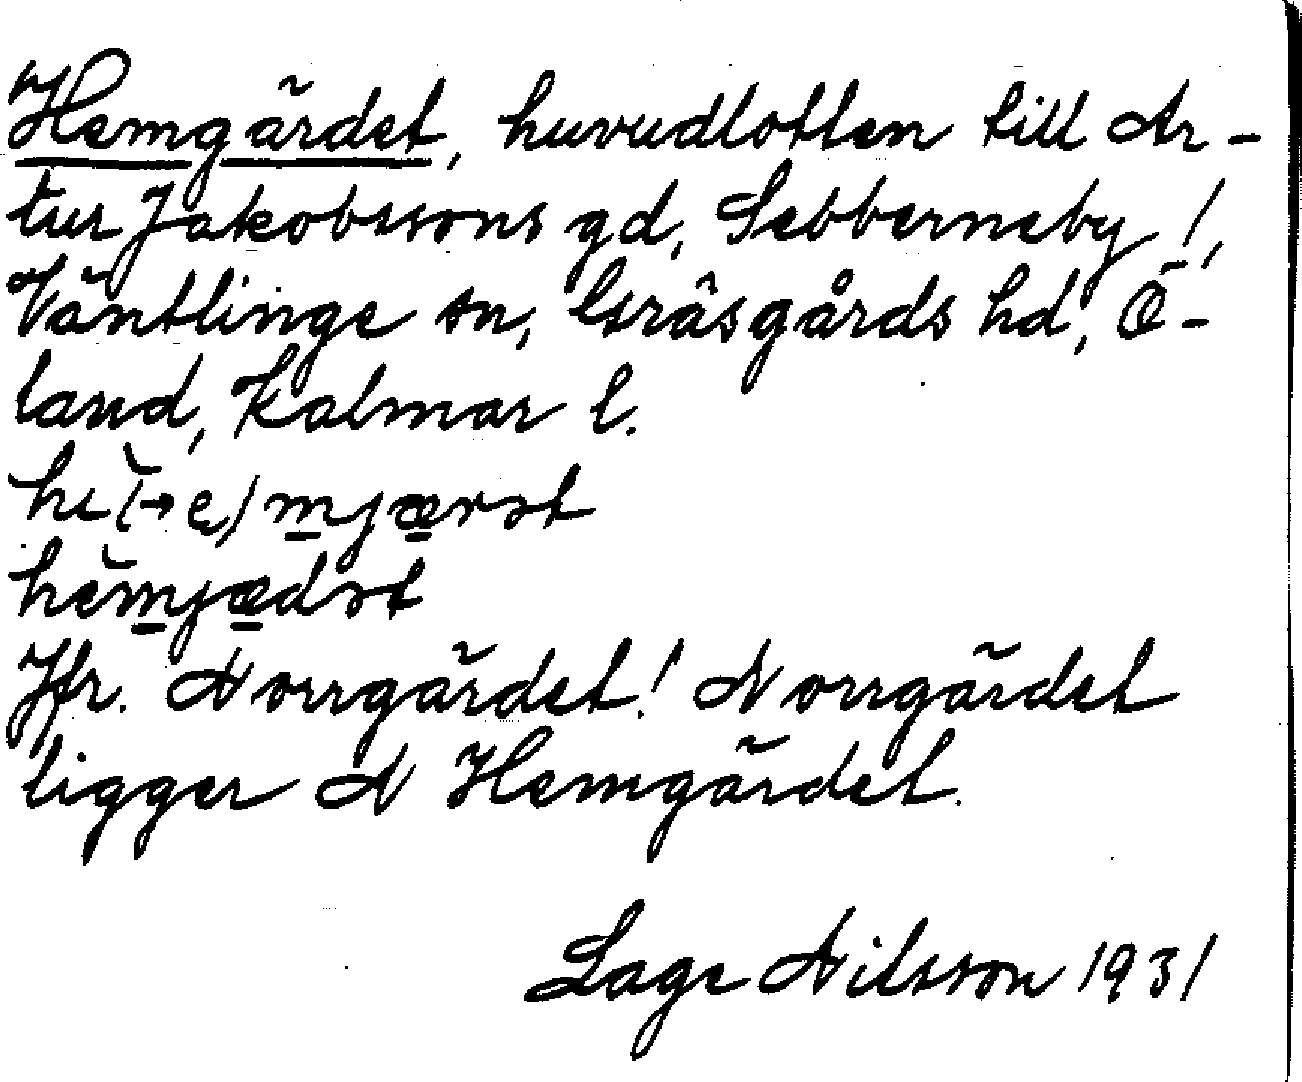 Hemgärdet, huvudlotten till Ar-
tur Jakobssons gd, Sebberneby 1,
Ventlinge sn, Gräsgårds hd, Ö-
land, Kalmar l.
Jfr. Norrgärdet! Norrgärdet
ligger N Hemgärdet.
Lage Nilsson 1931